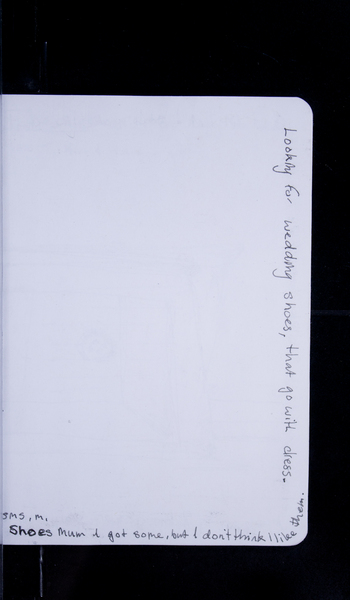 Looking for wedding shoes, that go with dress.
SMS, M,
Shoes Mum I got some, but I don't think I like
them.